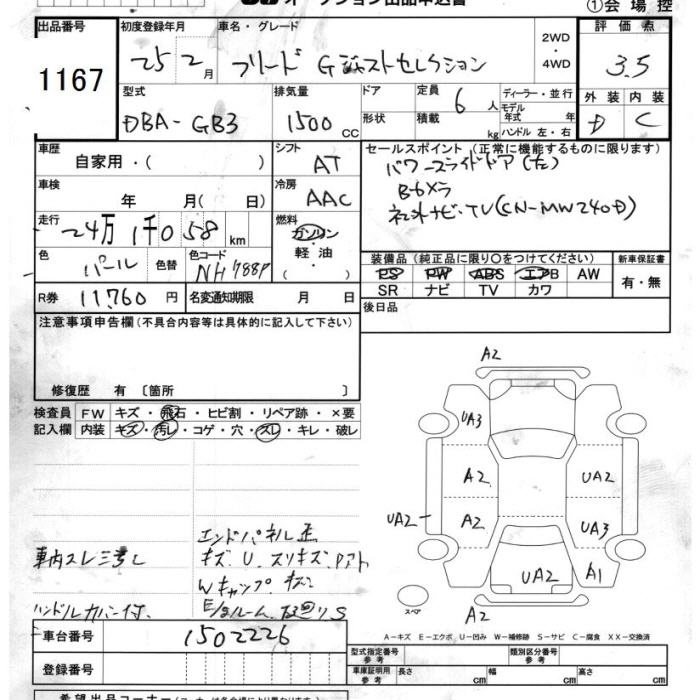 オークション出品申込書
①会場控
出品番号 初度登録年月 車名・グレード 評価点
1167 25 2月 フリード Gジャストセレクション 2WD・4WD 3.5
型式 排気量 ドア 定員 6人 ディーラー・並行 外装 内装
DBA-GB3 1500cc 形状 積載 kg モデル年式 年 ハンドル 左・右 D C
車歴 シフト セールスポイント (正常に機能するものに限ります)
自家用・( ) AT パワースライドドア(左)
車検 冷房 Bカメラ
年 月( 日) AAC 純正ナビ・TV(CN-MW240D)
走行 燃料
24万 1千058km ガソリン・軽油・( )
色 パール 色替 色コード NH788P 装備品(純正品に限り○をつけてください) 新車保証書
PS PW ABS エアB AW 有・無
SR ナビ TV カワ
R券 11,760円 名変通知期限 月 日 後日品
注意事項申告欄(不具合内容等は具体的に記入して下さい)
修復歴 有〔箇所 〕
検査員 FW キズ・飛石・ヒビ割・リペア跡・×要
記入欄 内装 キズ・汚レ・コゲ・穴・スレ・キレ・破レ
A2
UA3
A2 UA2
UA2 A2 UA3
UA2 A1
A2
スペア
エンドパネル歪
車内スレ汚レ キズ.U.スリキズ.Pアト
Wキャップ キズ
ハンドルカバー付. E/gルーム.下廻りS
車台番号 1502226
登録番号
A-キズ E-エクボ U-凹み W-補修跡 S-サビ C-腐食 XX-交換済
型式指定番号 参考 類別区分番号 参考
車庫証明用 参考 長さ cm 幅 cm 高さ cm
希望出品コーナー